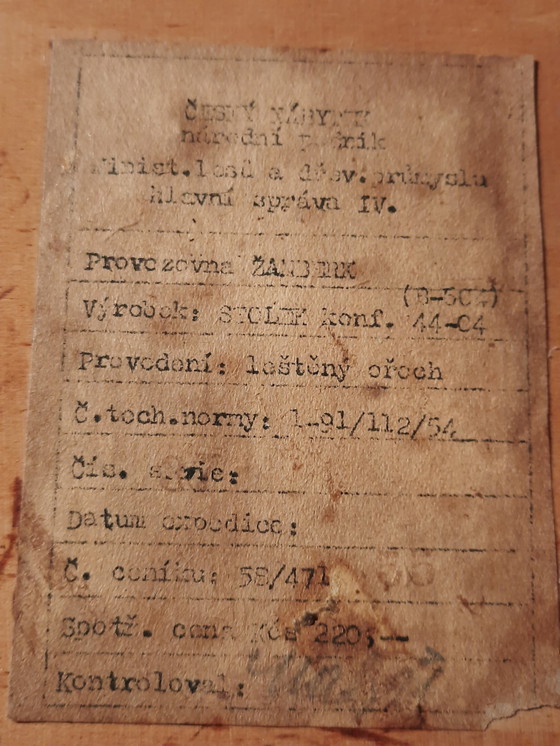 ČESKÝ NÁBYTEK
národní podnik
Minist.lesů a dřev.průmyslu
Hlavní správa IV.
Provozovna ŽAMBERK
(B-504)
Výrobek: STOLEK konf. 44-04
Provedení: leštěný ořech
Č.tech.normy: 1-91/112/54
Čís. serie:
Datum expedice:
Č. ceníku: 58/471
Spotř. cena Kčs 220,--
Kontroloval: